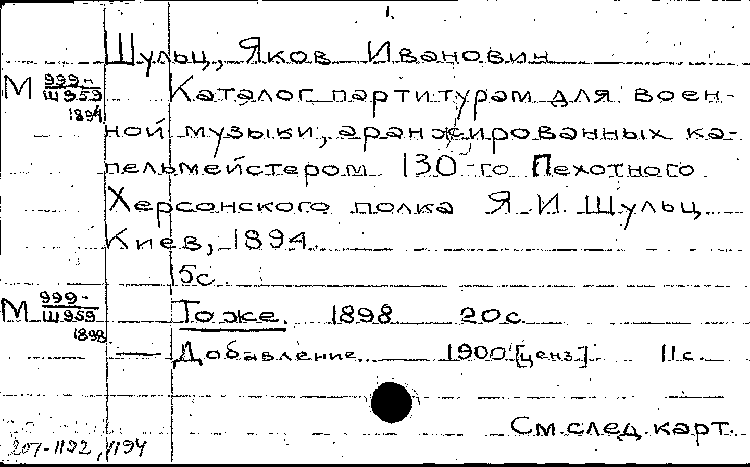 1.
Шульц, Яков Иванович
М 999-
Ш959
1894
Каталог партитурам для воен-
ной музыки, аранжированных ка-
пельмейстером 130-го Пехотного
Херсонского полка Я. И. Шульц
Киев, 1894.
15с.
М 999-
Ш959
1898
То же. 1898 20с.
— Добавление 1900 [ценз] 11с.
См. след. карт.
207-1192, 1194